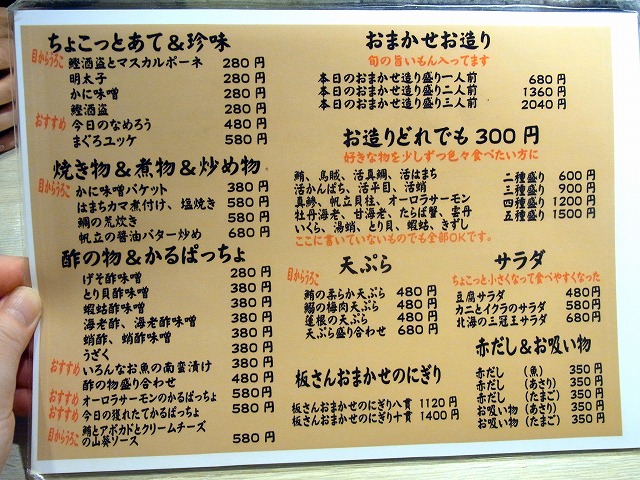 ちょこっとあて＆珍味
目からうろこ 鰹酒盗とマスカルポーネ 280円
明太子 280円
かに味噌 280円
鰹酒盗 280円
おすすめ 今日のなめろう 480円
まぐろユッケ 580円
焼き物＆煮物＆炒め物
目からうろこ かに味噌バケット 380円
はまちカマ煮付け、塩焼き 580円
鯛の荒炊き 580円
帆立の醤油バター炒め 680円
酢の物＆かるぱっちょ
げそ酢味噌 280円
とり貝酢味噌 380円
蝦蛄酢味噌 380円
海老酢、海老酢味噌 380円
蛸酢、蛸酢味噌 380円
うざく 380円
おすすめ いろんなお魚の南蛮漬け 380円
酢の物盛り合わせ 480円
おすすめ オーロラサーモンのかるぱっちょ 580円
おすすめ 今日の獲れたてかるぱっちょ 580円
目からうろこ 鮪とアボカドとクリームチーズ
の山葵ソース 580円
おまかせお造り
旬の旨いもん入ってます
本日のおまかせ造り盛り一人前 680円
本日のおまかせ造り盛り二人前 1360円
本日のおまかせ造り盛り三人前 2040円
お造りどれでも300円
好きな物を少しずつ色々食べたい方に
鮪、烏賊、活真鯛、活はまち 二種盛り 600円
活かんぱち、活平目、活蛸 三種盛り 900円
真鯵、帆立貝柱、オーロラサーモン 四種盛り 1200円
牡丹海老、甘海老、たらば蟹、雲丹 五種盛り 1500円
いくら、湯蛸、とり貝、蝦蛄、きずし
ここに書いていないものでも全部OKです。
天ぷら
目からうろこ 鮪の柔らか天ぷら 480円
鰯の梅肉天ぷら 480円
蓮根の天ぷら 480円
天ぷら盛り合わせ 680円
サラダ
ちょこっと小さくなって食べやすくなった
豆腐サラダ 480円
カニとイクラのサラダ 580円
北海の三冠王サラダ 680円
板さんおまかせのにぎり
板さんおまかせのにぎり八貫 1120円
板さんおまかせのにぎり十貫 1400円
赤だし＆お吸い物
赤だし （魚） 350円
赤だし （あさり） 350円
赤だし （たまご） 350円
お吸い物（あさり） 350円
お吸い物（たまご） 350円